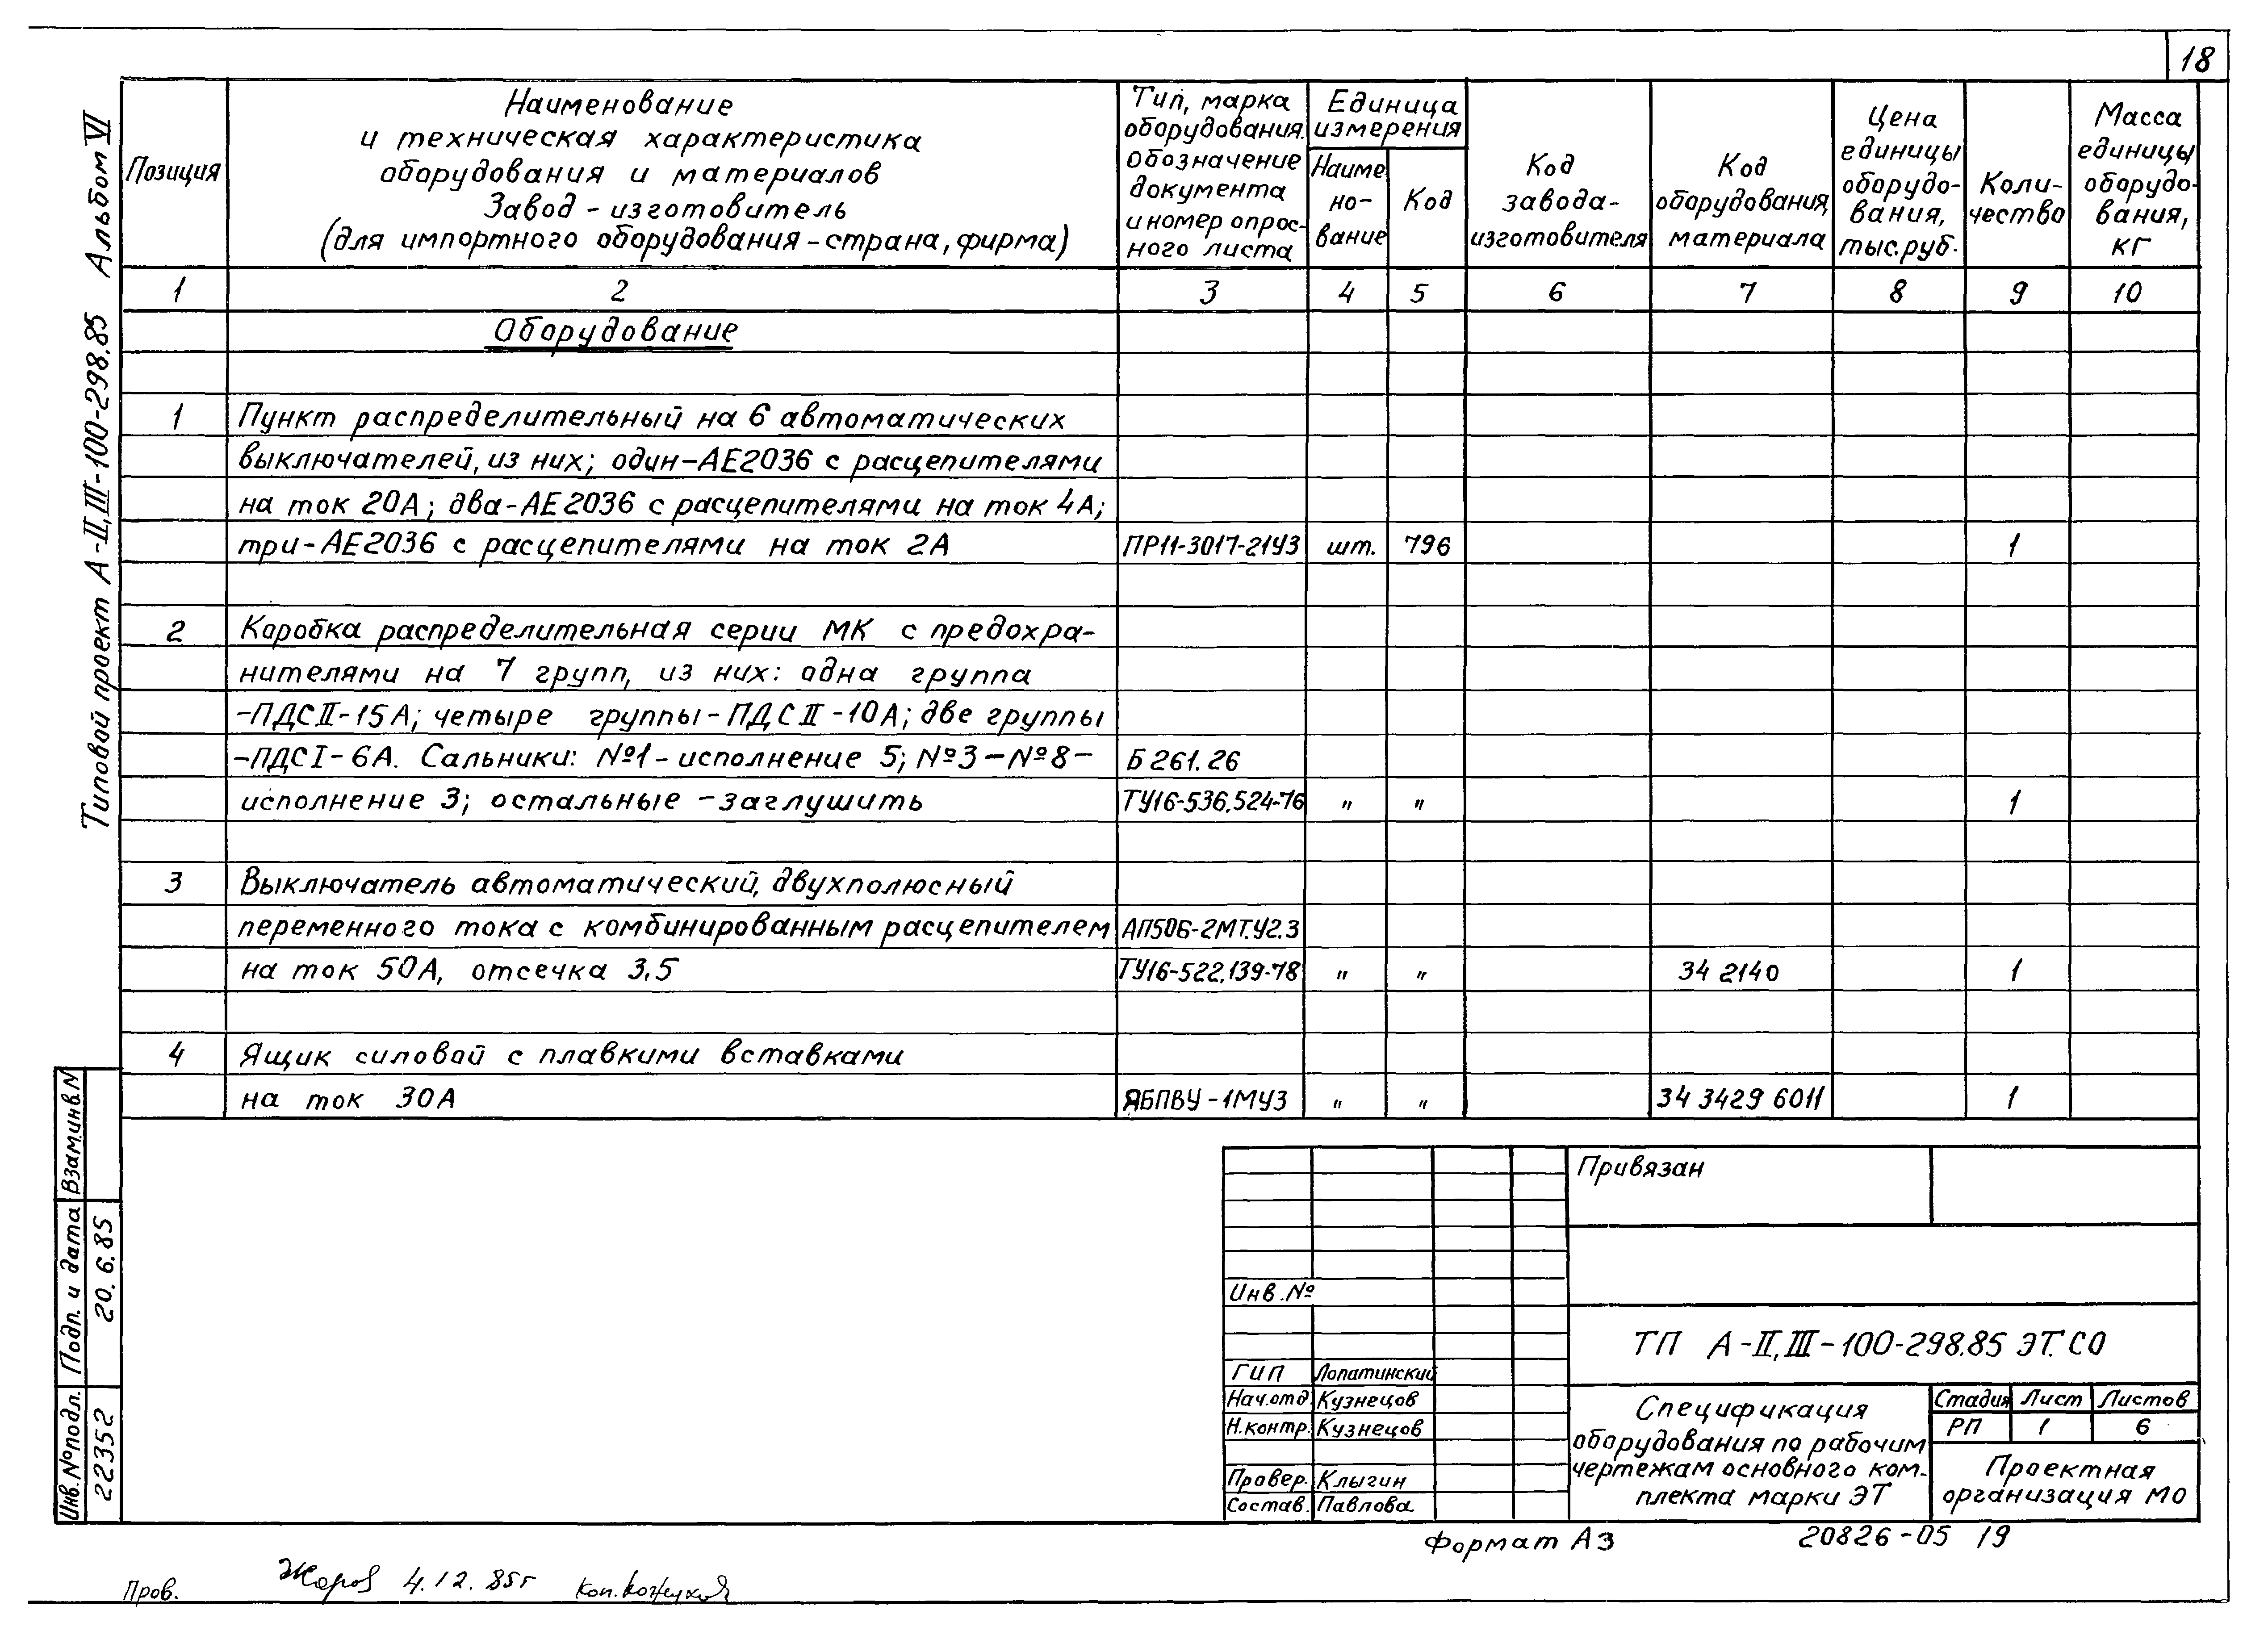 18
Типовой проект А-II,III-100-298.85 Альбом VI
Позиция
Наименование
и техническая характеристика
оборудования и материалов
Завод - изготовитель
(для импортного оборудования - страна, фирма)
Тип, марка
оборудования.
Обозначение
документа
и номер опрос-
ного листа
Единица
измерения
Наиме
но-
вание
Код
Код
завода-
изготовителя
Код
оборудования,
материала
Цена
единицы
оборудо-
вания,
тыс.руб.
Коли-
чество
Масса
единицы
оборудо-
вания,
кг
1 2 3 4 5 6 7 8 9 10
Оборудование
1 Пункт распределительный на 6 автоматических
выключателей, из них; один-АЕ2036 с расцепителями
на ток 20А; два-АЕ2036 с расцепителями на ток 4А;
три-АЕ2036 с расцепителями на ток 2А ПР11-3017-21У3 шт. 796 1
2 Коробка распределительная серии МК с предохра-
нителями на 7 групп, из них: одна группа
-ПДСII-15А; четыре группы-ПДСII-10А; две группы
-ПДСI-6А. Сальники: №1-исполнение 5; №3-№8- Б 261.26
исполнение 3; остальные -заглушить ТУ16-536.524-76 " " 1
3 Выключатель автоматический, двухполюсный
переменного тока с комбинированным расцепителем АП50Б-2МТ.У2.3
на ток 50А, отсечка 3.5 ТУ16-522.139-78 " " 34 2140 1
4 Ящик силовой с плавкими вставками
на ток 30А ЯБПВУ-1МУ3 " " 34 3429 6011 1
Взам.инв.N
Подп. и дата 20. 6.85
Инв.№подл. 22352
Привязан
Инв.№
ТП А-II,III-100-298.85 ЭТ.СО
ГИП Лопатинский
Нач.отд Кузнецов
Н.контр. Кузнецов
Провер. Клыгин
Состав. Павлова
Спецификация
оборудования по рабочим
чертежам основного ком-
плекта марки ЭТ
Стадия Лист Листов
РП 1 6
Проектная
организация МО
Формат А3 20826-05 19
Пров. Жаров 4.12.85г Коп.